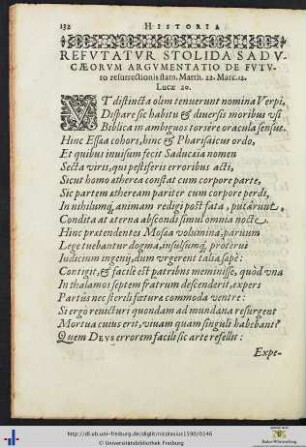 132 HISTORIA
REFUTATUR STOLIDA SADU-
CÆORVM ARGVMENTATIO DE FVTV-
ro resurrectionis statu. Matth. 22. Marc. 12.
Lucæ 20.
VT distincta olim tenuerunt nomina Verpi,
Dispare sic habitu & diversis moribus usi
Biblica in ambiguos torsere oracula sensus.
Hinc Essæa cohors, hinc & Pharisaicus ordo,
Et quibus invisum fecit Saducæa nomen
Secta viris, qui pestiferis erroribus acti,
Sicut homo ætherea constat cum corpore parte,
Sic partem æthream pariter cum corpore perdi,
In nihilumq; animam redigi post fata, putârunt,
Condita at æterna abscondi simul omnia nocte.
Hinc prætendentes Mosæa volumina, parvum
Lege tuebantur dogma, insulsumq; protervi
Iudicium ingenij, dum vrgerent talia sæpè:
Contigit, & facile est patribus meminisse, quòd vna
In thalamos septem fratrum descenderit, expers
Partus nec sterili fœturæ commoda ventre:
Si ergò revicturi quondam ad mundana resurgent
Mortua cuius erit, vivam quam singuli habebant?
Quem DEVS errorem facile sic arte refellit:
Expe-
http://dl.ub.uni-freiburg.de/diglit/nicolasius1590/0146